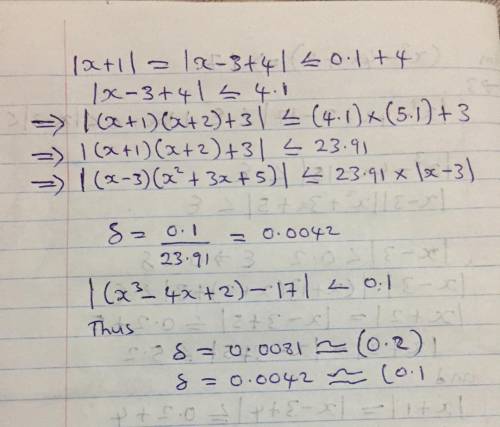 |x+1| = |x-3+4| ≤ 0.1+4
|x-3+4| ≤ 4.1
⇒ |(x+1)(x+2)+3| ≤ (4.1)×(5.1)+3
⇒ |(x+1)(x+2)+3| ≤ 23.91
⇒ |(x-3)(x²+3x+5)| ≤ 23.91 × |x-3|
δ = 0.1/23.91 = 0.0042
|(x³-4x+2)-17| < 0.1
Thus
δ = 0.0081 ≃ (0.2)
δ = 0.0042 ≃ (0.1